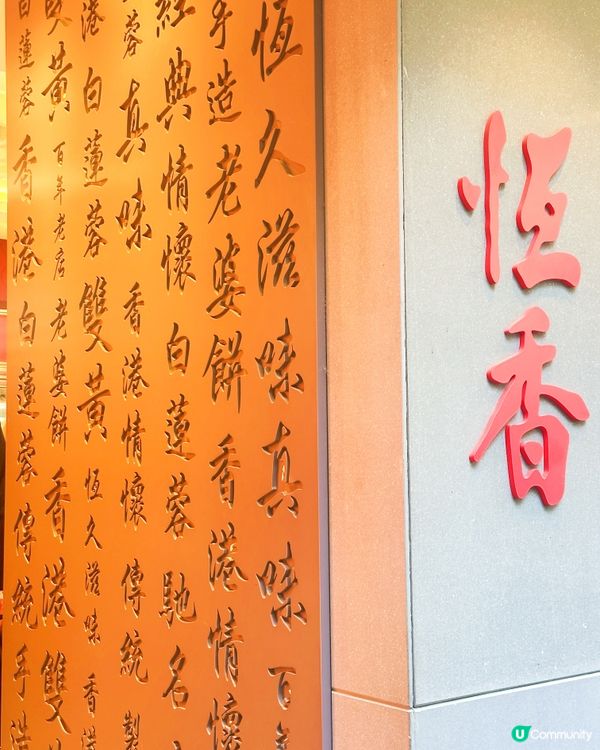 恆香
恆久滋味真味百年
手造老婆餅香港情懷
經典情懷白蓮蓉馳名
蓉真味香港情懷傳統製
港白蓮蓉雙黃恆久滋味香港
雙黃百年老店老婆餅香港雙
白蓮蓉香港白蓮蓉傳統手造
U Community